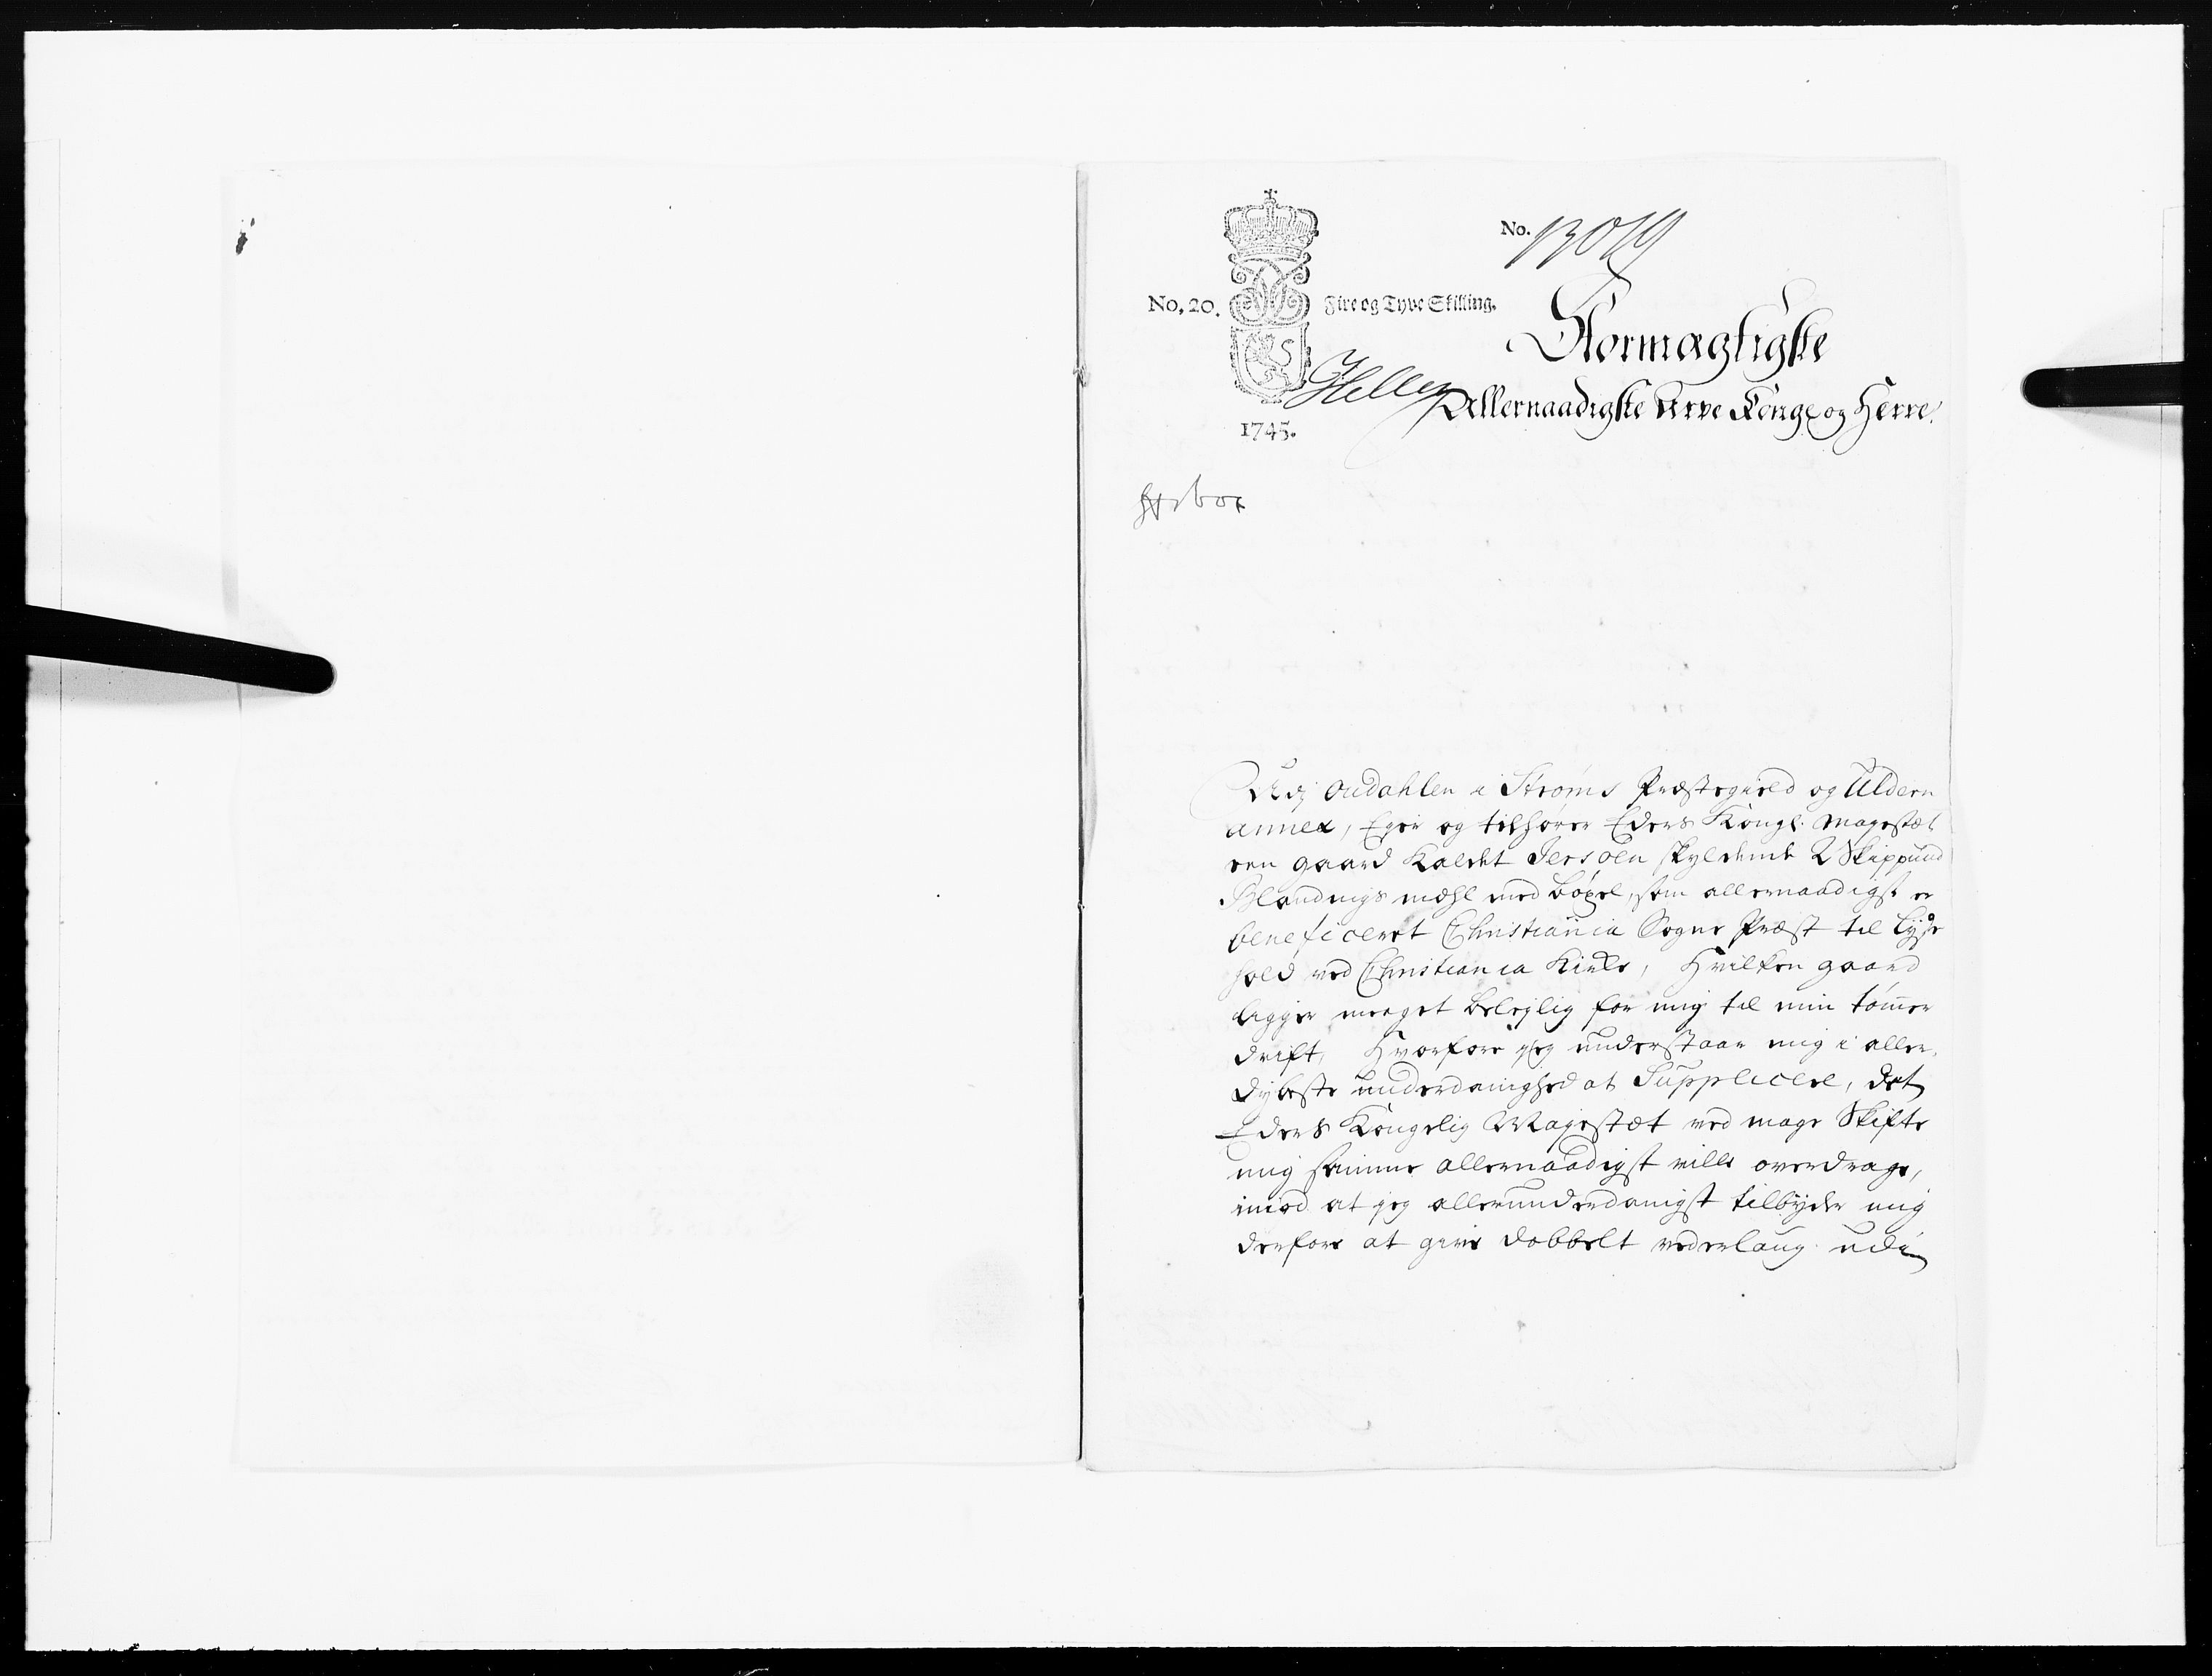 No. 13019
No. 20. Fire og Tyve Skilling.
Stormægtigste
Heller
Allernaadigste Arve Konge og Herre
1745.
Udj Oudahlen i Strøms Præstegield og Uldern
annex, Eger og tilhører Eders Kongl. Mayestæt
een gaard kaldet Jersøen skyldende 2 Skippund
Blandings mehl med bøxel, som allernaadigst er
beneficeret Christiania Sogne Præst til Lyse
hold ved Christiania Kirke, Hvilken gaard
ligger meeget beleylig for mig til min tømer
drift, Hvorfore jeg understaar mig i aller
dybeste underdanighed at Supplicere, det
Eders Kongelig Mayestæt ved mage Skifte
mig samme allernaadigst wille overdrage,
imod at jeg allerunderdanigst tilbyder mig
derfore at give dobbelt vederlaug udi